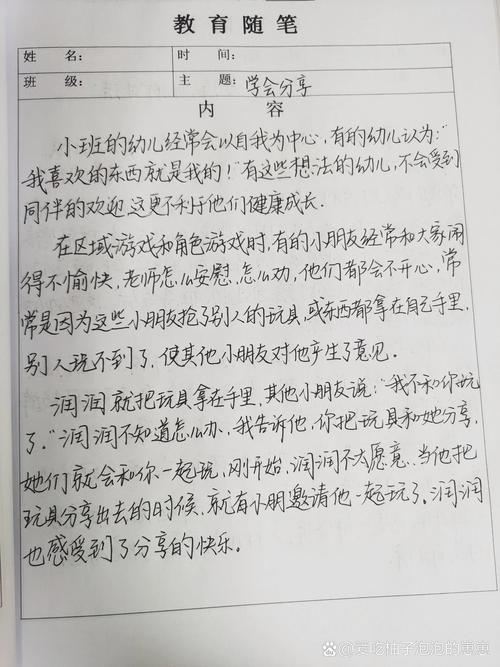 教育随笔
姓 名： 时 间：
班 级： 主 题：学会分享
内 容
小班的幼儿经常会以自我为中心，有的幼儿认为："
我喜欢的东西就是我的！"有这些想法的幼儿，不会受到
同伴的欢迎，这更不利于他们健康成长．
在区域游戏和角色游戏时，有的小朋友经常和大家闹
得不愉快，老师怎么安慰，怎么劝，他们都会不开心，常
常是因为这些小朋友抢了别人的玩具，或东西都拿在自己手里，
别人玩不到了，使其他小朋友对他产生了意见。
润润就把玩具拿在手里，其他小朋友说："我不和你玩
了。"润润不知道怎么办，我告诉他，你把玩具和她分享，
她们就会和你一起玩，刚开始，润润不太愿意，当他把
玩具分享出去的时候，就有小朋邀请他一起玩了。润润
也感受到了分享的快乐。
百度@爱吃柚子泡泡的崽崽